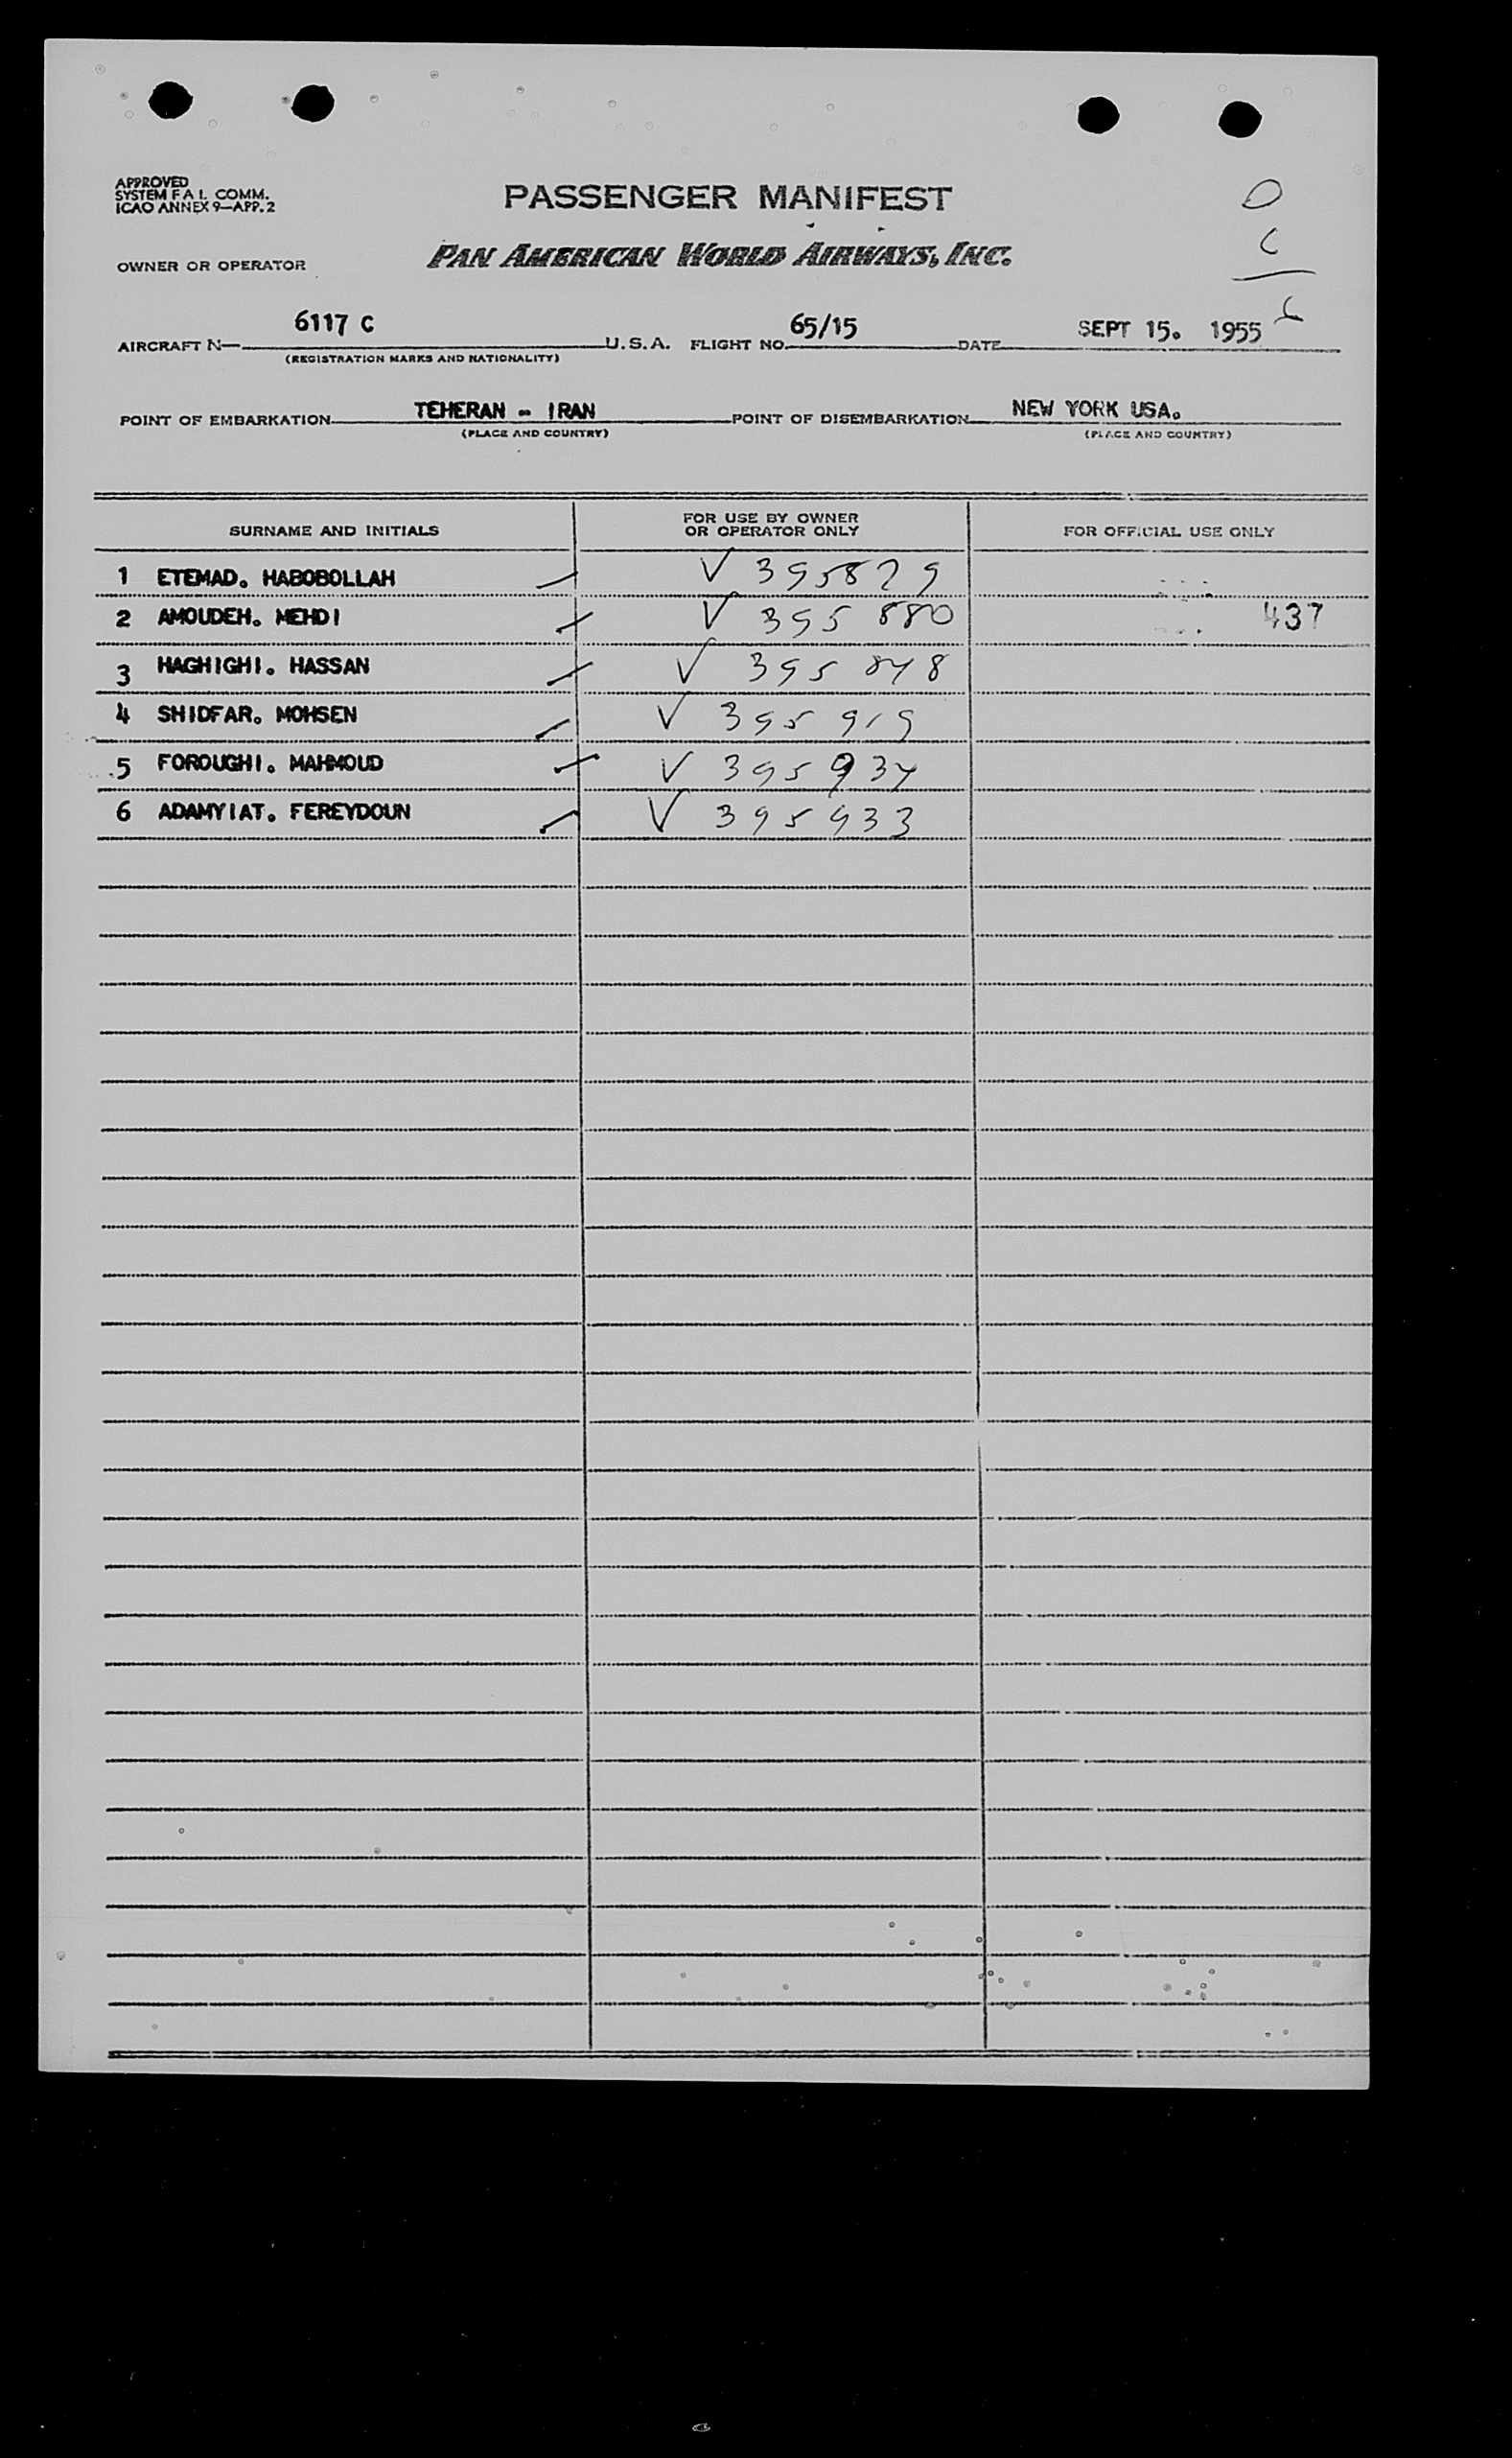 APPROVED
SYSTEM F A L COMM.
ICAO ANNEX 9—APP. 2
PASSENGER MANIFEST
OWNER OR OPERATOR
PAN AMERICAN WORLD AIRWAYS, INC.
0
6
6
AIRCRAFT N— 6117 C U.S.A. FLIGHT NO. 65/15 DATE SEPT 15. 1955
(REGISTRATION MARKS AND NATIONALITY)
POINT OF EMBARKATION TEHERAN - IRAN POINT OF DISEMBARKATION NEW YORK USA.
(PLACE AND COUNTRY) (PLACE AND COUNTRY)
SURNAME AND INITIALS FOR USE BY OWNER OR OPERATOR ONLY FOR OFFICIAL USE ONLY
1 ETEMAD. HABOBOLLAH V 395879
2 AMOUDEH. MEHDI V 395 880 437
3 HAGHIGHI. HASSAN V 395 848
4 SHIDFAR. MOHSEN V 395 919
5 FOROUGHI. MAHMOUD V 395934
6 ADAMYIAT. FEREYDOUN V 395933